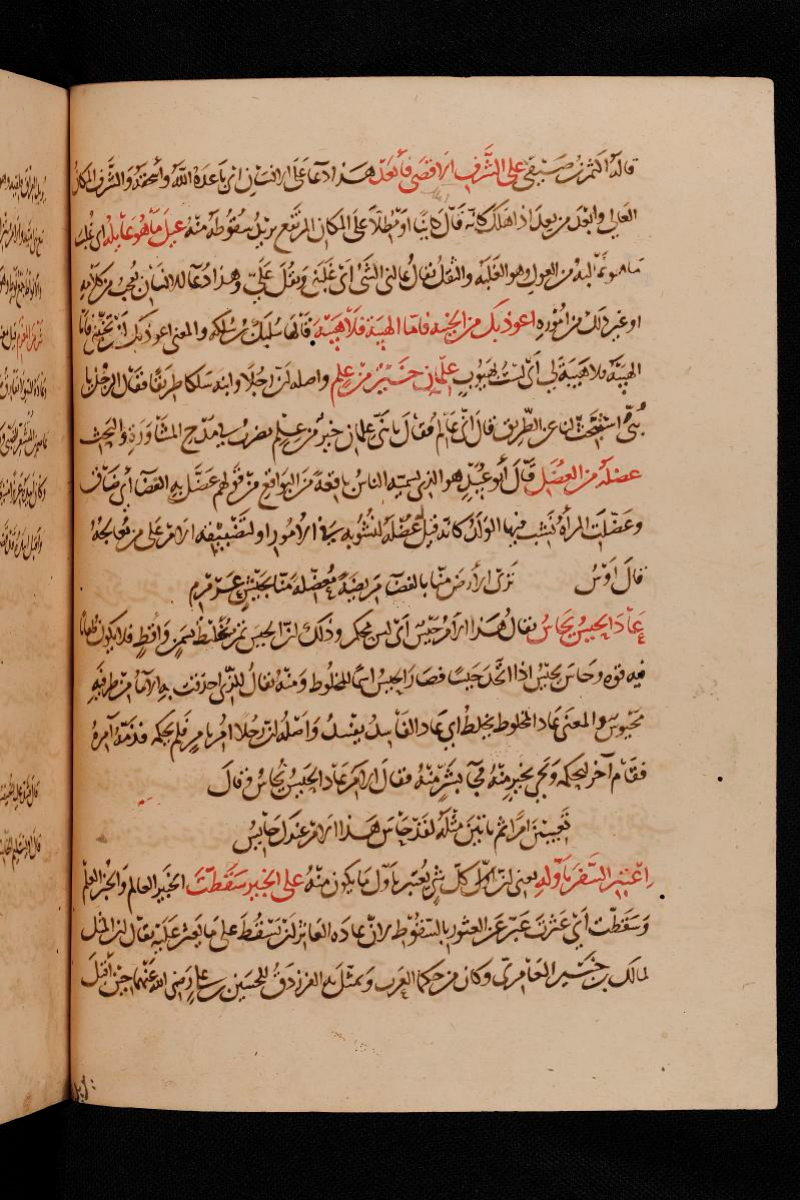 قاله اكثم بن صيفي على الشرف الاقصى فأبعد هذا دعا على الانسان اي باعده الله وأسحقه والشرف المكان
العالي وابعد من بعد اذا هلك كانه قال هاويا او مطلا على المكان المرتفع يريد سقوطه منه عيل ما هو عايله اي غلب
ما هو غالبه من العول وهو الغلبه والثقل يقال عالني الشئ اى غلبني وثقل عليّ وهذا دعا للانسان يعجب من كلامه
او غير ذلك من اموره اعوذ بك من الخيبه فاما الهيبة فلا هيبة قالها سليك بن سلكه والمعنى اعوذ بك ان تخيبني فاما
الهيبة فلا هيبة لي اى لست بهيوب علمان خير من علم واصله ان رجلا وابنه سلكا طريقا فقال الرجل يا
بني استبحث لنا عن الطريق قال اني عالم فقال يا بني علمان خير من علم يضرب في مدح المشاورة والبحث
عضله من العضل قال أبو عبيد هو الذى يسميه الناس باقعة من البواقع من قولهم عضل به الفضا اي ضاق
وعضلت المرأة نشب فيها الولد كانه قيل له عضلة لنشوبه في الامور او لتضييقه الامر على من يعالجه
قال اوس ترى الارض منا بالفضا مريضة معضلة منا بجيش عرمرم
عاد الحيس يحاس يقال هذا الامر حيس اى ليس بمحكم وذلك ان الحيس تمر يخلط بسمن واقط فلا يكون طعاما
فيه قوه وحاس يحيس اذا اتخذ حيسا فصار الحيس اسما للمخلوط ومنه يقال للذى احدقت به الاما من طرفيه
محيوس والمعنى عاد المخلوط يخلط اي عاد الفاسد يفسد وأصله ان رجلا امر بامر فلم يحكمه فذمه آمره
فقام آخر ليحكمه ويجى بخير منه فجآ بشر منه فقال الامر عاد الحيس يحاس وقال
تعيبين امرا ثم تاتين مثله لقد حاس هذا الامر عندك حايس
اعتبر السفر باوله يعنى ان كل شى يعتبر باول ما يكون منه على الخبير سقطت الخبير العالم والخبر العلم
وسقطت أي عثرت عبر عن العثور بالسقوط لان عادة العاثر ان يسقط على ما يعثر عليه يقال ان المثل
لمالك بن جبير العامرى وكان من حكما العرب وتمثل به الفرزدق للحسين بن علي رضى الله عنهما حين اقبل